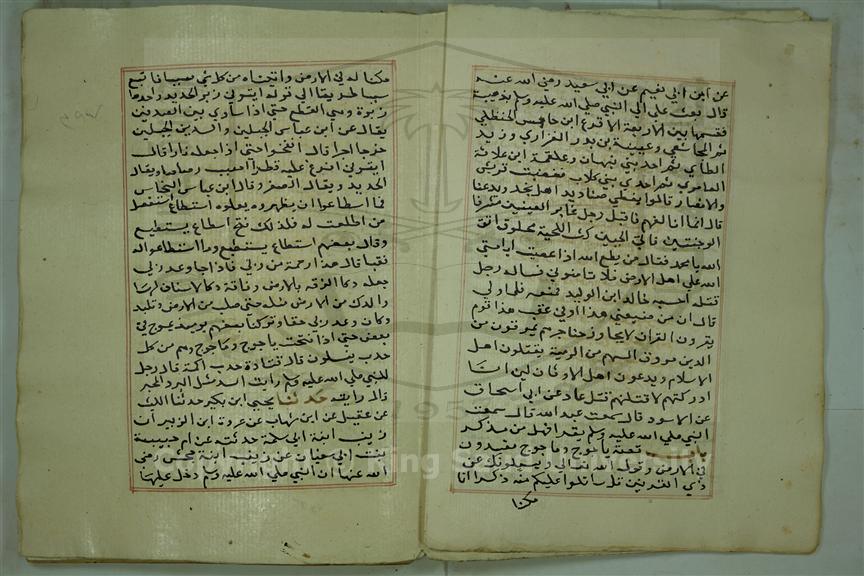 عن ابن ابي نعيم عن ابي سعيد رضي الله عنه
قال بعث علي الي النبي صلي الله عليه وسلم بذهيبة
فقسمها بين الاربعة الاقرع ابن حابس الحنظلي
ثم المجاشعي وعيينة بن بدر الفزاري وزيد
الطاي ثم احد بني نبهان وعلقمة ابن علاثة
العامري ثم احد بني كلاب فغضبت قريش
والانصار قالوا يعطي صناديد اهل نجد ويدعنا
قال انما اتالفهم فاقبل رجل غاير العينين مشرف
الوجنتين ناتي الجبين كث اللحية محلوق اتق
الله يا محمد فقال من يطع الله اذا عصيت ايامني
الله علي اهل الارض فلا تامنوني فساله رجل
قتله احسبه خالد ابن الوليد فمنعه فلما ولي
قال ان من ضيضي هذا او في عقب هذا قوم
يقرون القران لا يجاوز حناجرهم يمرقون من
الدين مروق السهم من الرمية يقتلون اهل
الاسلام ويدعون اهل الاوثان لين انا
ادركتهم لاقتلنهم قتل عاد عن ابي اسحاق
عن الاسود قال سمعت عبد الله قال سمعت
النبي صلي الله عليه وسلم يقرا فهل من مدكر
باب قصة ياجوج وماجوج مفسدون
في الارض وقول الله تعالي ويسلونك عن
ذي القرنين قل ساتلوا عليكم منه ذكرا انا
مكنا
مكنا له في الارض واتيناه من كل شي سببا فاتبع
سببا طريقا الي قوله ايتوني زبر الحديد واحدها
زبرة وهي القطع حتي اذا ساوي بين الصدفين
يقال عن ابن عباس الجبلين والسدين الجبلين
خرجا اجرا قال انفخوا حتي اذا جعله نارا قال
ايتوني افرغ عليه قطرا اصب رصاصا ويقال
الحديد ويقال الصفر وقال ابن عباس النحاس
فما اسطاعوا ان يظهروه يعلوه استطاع استفعل
من اطلعت له فلذلك فتح اسطاع يستطيع
وقال بعضهم استطاع يستطيع وما استطاعوا له
نقبا قال هذا رحمة من ربي فاذا جا وعد ربي
جعله دكا الزقه بالارض وناقة دكا لا سنام لها
والدكداك من الارض مثله حتي صلب من الارض وتلبد
وكان وعد ربي حقا وتركنا بعضهم يوميذ يموج في
بعض حتي اذا فتحت ياجوج وماجوج وهم من كل
حدب ينسلون قال قتادة حدب اكمة قال رجل
للنبي صلي الله عليه وسلم رايت السد مثل البرد المحبر
قال رايته حدثنا يحيي ابن بكير حدثنا الليث
عن عقيل عن ابن شهاب عن عروة ابن الزبير ان
زينب ابنة ابي سلمة حدثته عن ام حبيبة
بنت ابي سفيان عن زينب ابنة جحش رضي
الله عنها ان النبي صلي الله عليه وسلم دخل عليها